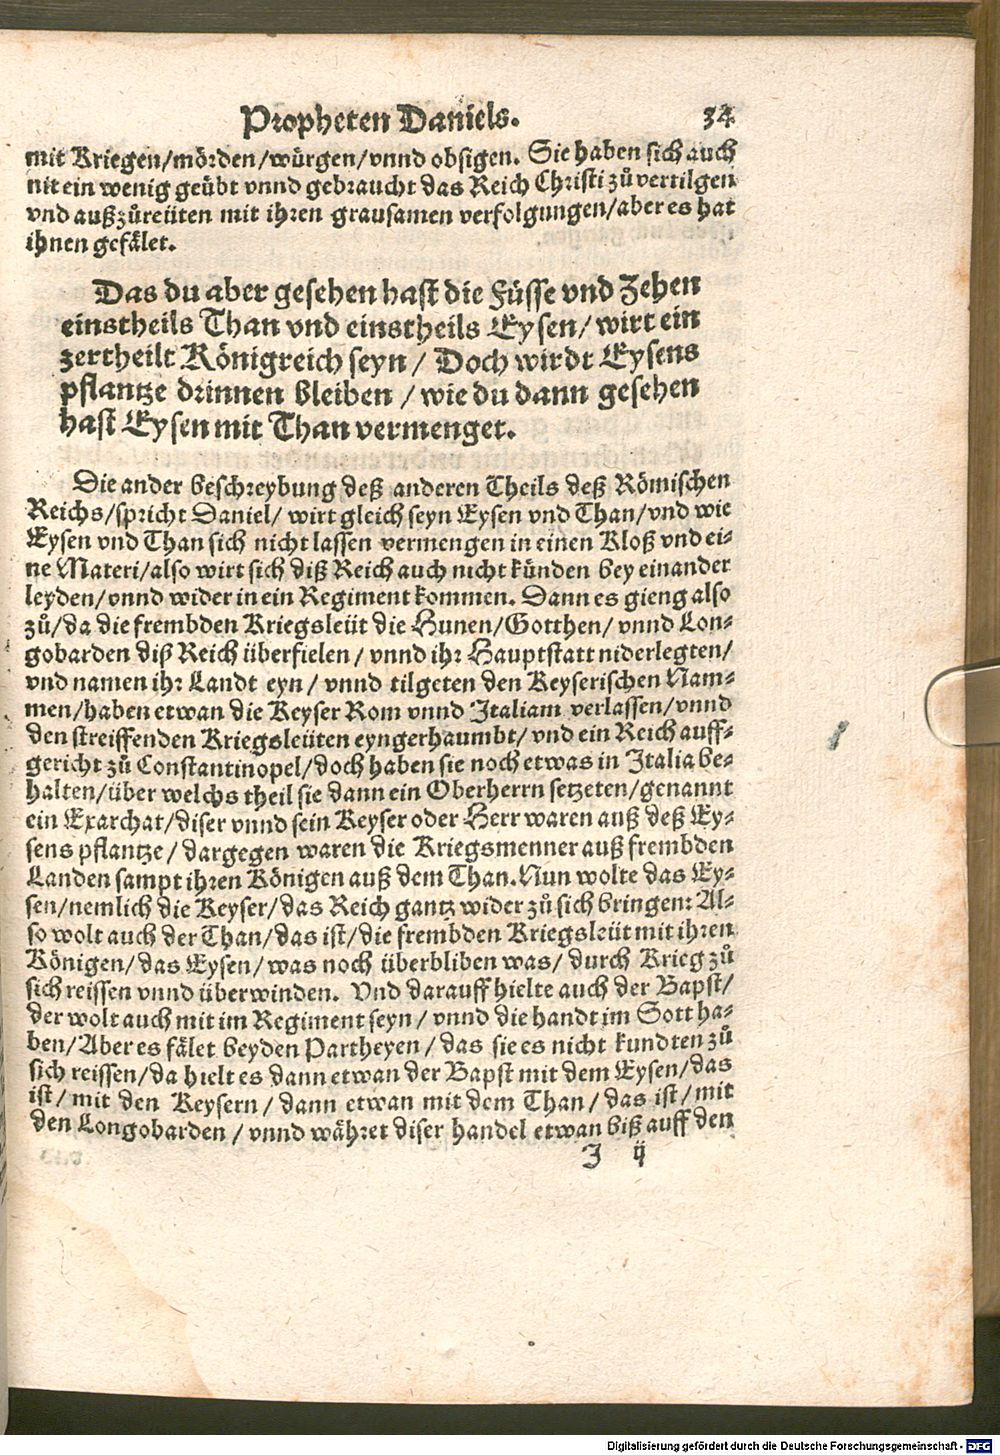 Propheten Daniels. 34
mit Kriegen/mörden/würgen/vnnd obsigen. Sie haben sich auch
nit ein wenig geübt vnnd gebraucht das Reich Christi zů vertilgen
vnd außzůreüten mit ihren grausamen verfolgungen/aber es hat
ihnen gefälet.
Das du aber gesehen hast die Füsse vnd Zehen
einstheils Than vnd einstheils Eysen/wirt ein
zertheilt Königreich seyn/Doch wirdt Eysens
pflantze drinnen bleiben/wie du dann gesehen
hast Eysen mit Than vermenget.
Die ander beschreybung deß anderen Theils deß Römischen
Reichs/spricht Daniel/wirt gleich seyn Eysen vnd Than/vnd wie
Eysen vnd Than sich nicht lassen vermengen in einen Kloß vnd ei-
ne Materi/also wirt sich diß Reich auch nicht künden bey einander
leyden/vnnd wider in ein Regiment kommen. Dann es gieng also
zů/da die frembden Kriegsleüt die Hunen/Gotthen/vnnd Lon-
gobarden diß Reich überfielen/vnnd ihr Hauptstatt niderlegten/
vnd namen ihr Landt eyn/vnnd tilgeten den Keyserischen Nam-
men/haben etwan die Keyser Rom vnnd Italiam verlassen/vnnd
den streiffenden Kriegsleüten eyngerhaumbt/vnd ein Reich auff-
gericht zů Constantinopel/doch haben sie noch etwas in Italia be-
halten/über welchs theil sie dann ein Oberherrn setzeten/genannt
ein Exarchat/diser vnnd sein Keyser oder Herr waren auß deß Ey-
sens pflantze/dargegen waren die Kriegsmenner auß frembden
Landen sampt ihren Königen auß dem Than. Nun wolte das Ey-
sen/nemlich die Keyser/das Reich gantz wider zů sich bringen: Al-
so wolt auch der Than/das ist/die frembden Kriegsleüt mit ihren
Königen/das Eysen/was noch überbliben was/durch Krieg zů
sich reissen vnnd überwinden. Vnd darauff hielte auch der Bapst/
der wolt auch mit im Regiment seyn/vnnd die handt im Sott ha-
ben/Aber es fälet beyden Partheyen/das sie es nicht kundten zů
sich reissen/da hielt es dann etwan der Bapst mit dem Eysen/das
ist/mit den Keysern/dann etwan mit dem Than/das ist/mit
den Longobarden/vnnd währet diser handel etwan biß auff den
J ij
Digitalisierung gefördert durch die Deutsche Forschungsgemeinschaft - DFG